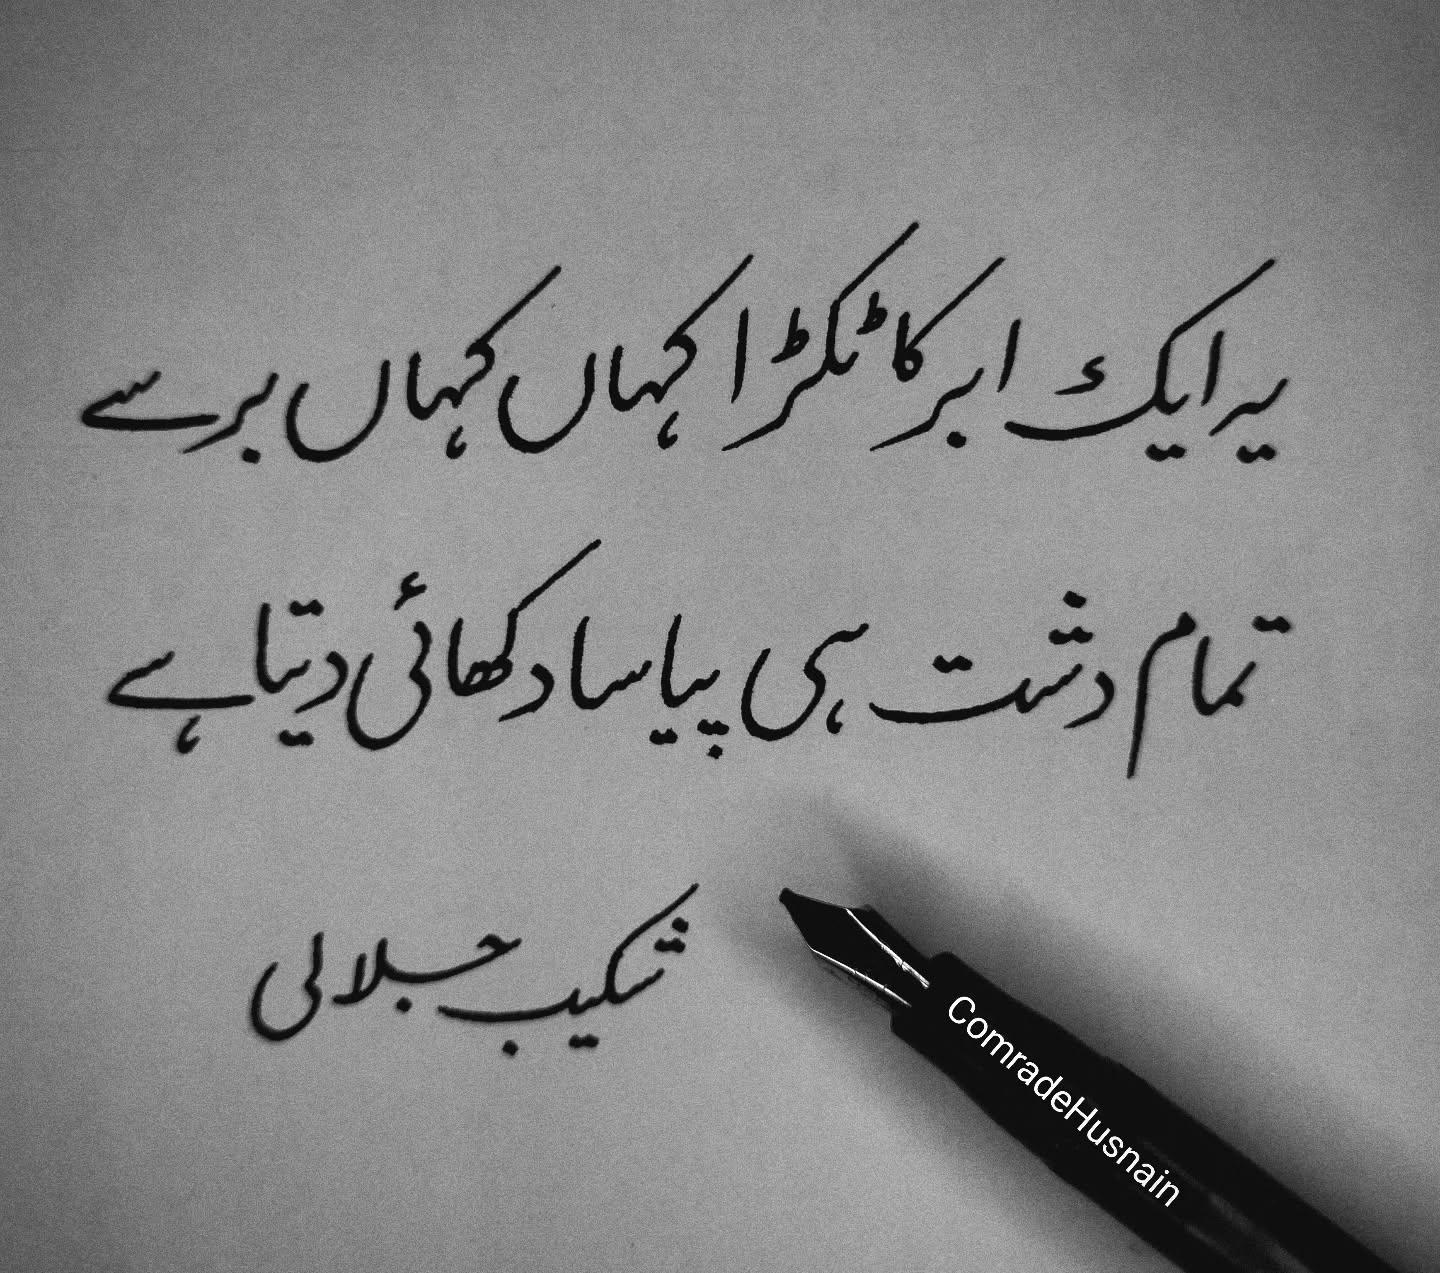 یہ ایک ابر کا ٹکڑا کہاں کہاں برسے
تمام دشت ہی پیاسا دکھائی دیتا ہے
شکیب جلالی
ComradeHusnain